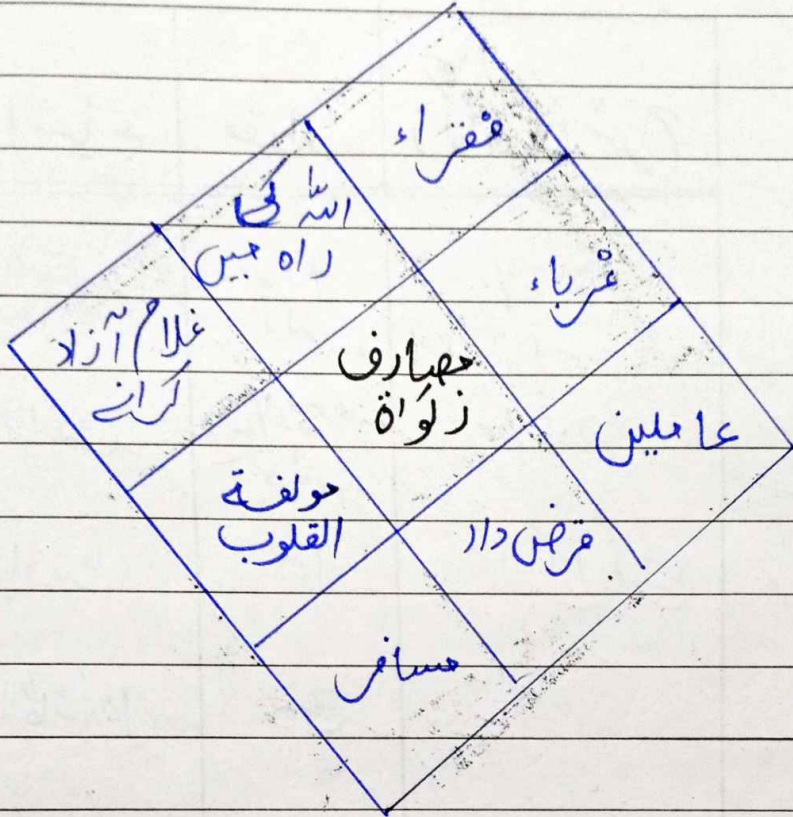 فقراء
اللہ کی
راہ میں
غرباء
غلام آزاد
کرانے
مصارف
زکواۃ
عاملین
مولفۃ
القلوب
قرض دار
مسافر